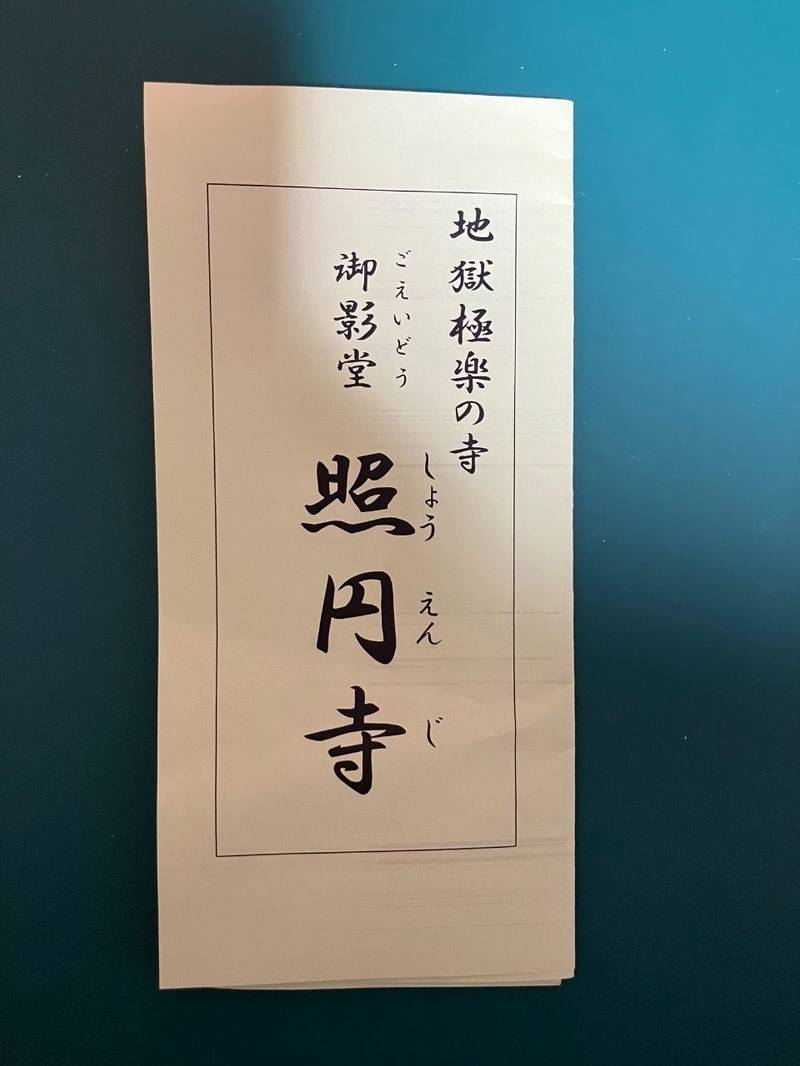 地獄極楽の寺
ごえいどう
御影堂
しょうえんじ
照円寺